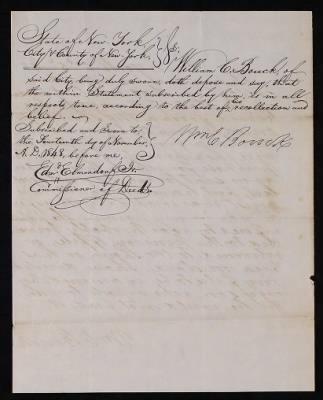 State of New York }
City & County of New York } ss.
William C. Bouck, of
said City, being duly sworn, doth depose and say, that
the within Statement subscribed by him, is in all
respects true, according to the best of his recollection and
belief.
Subscribed and Sworn to }
the Fourteenth day of November }
A.D. 1848, before me, }
Wm C Bouck
Edwd Elmendorf Jr.
Commissioner of Deeds